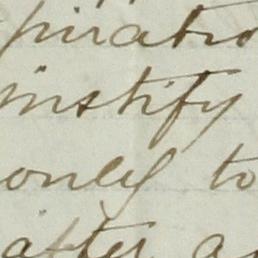 piratio
justify
only to
after a